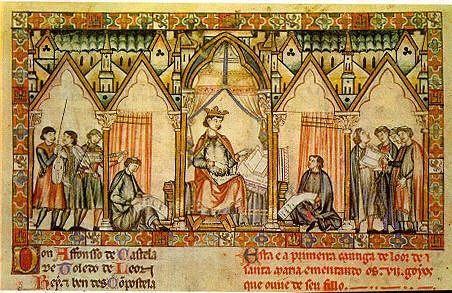 Don Affonso de Castela
de Toledo de Leon
Rey e ben des Cõpostela
Esta e a primeira cantiga de loor de
santa maria ementando os .vii. goyos
que ouue de seu fillo